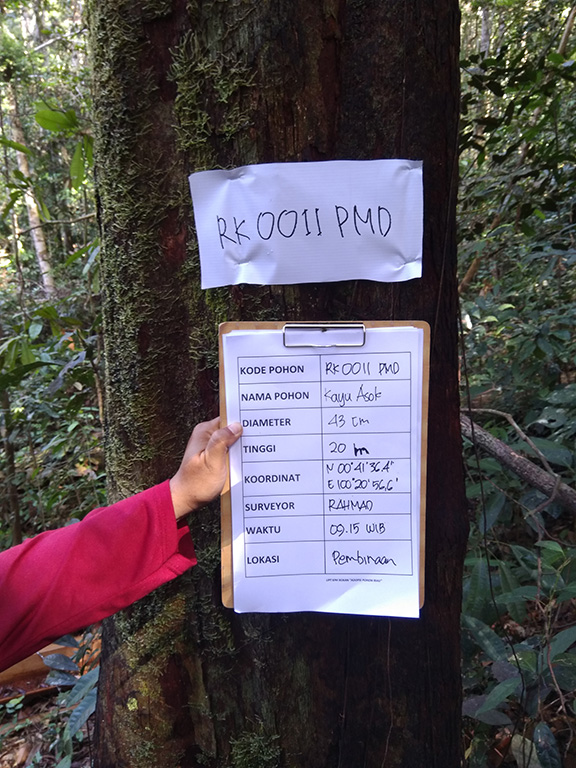 RK 0011 PMD
KODE POHON RK 0011 PMD
NAMA POHON Kayu Asok
DIAMETER 43 cm
TINGGI 20 m
KOORDINAT N 00°41'36.4"
E 100°20'56.6"
SURVEYOR RAHMAD
WAKTU 09.15 WIB
LOKASI Pembinaan